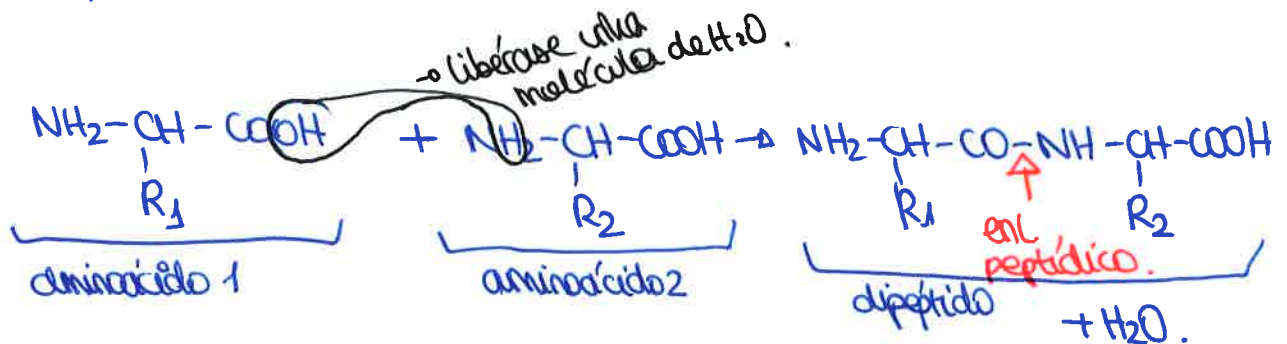 → libérase unha
molécula de H₂O.
NH₂-CH-COOH + NH₂-CH-COOH → NH₂-CH-CO-NH-CH-COOH
R₁ R₂ R₁ R₂
enl
peptídico.
aminoácido 1 aminoácido 2 dipéptido
+ H₂O.